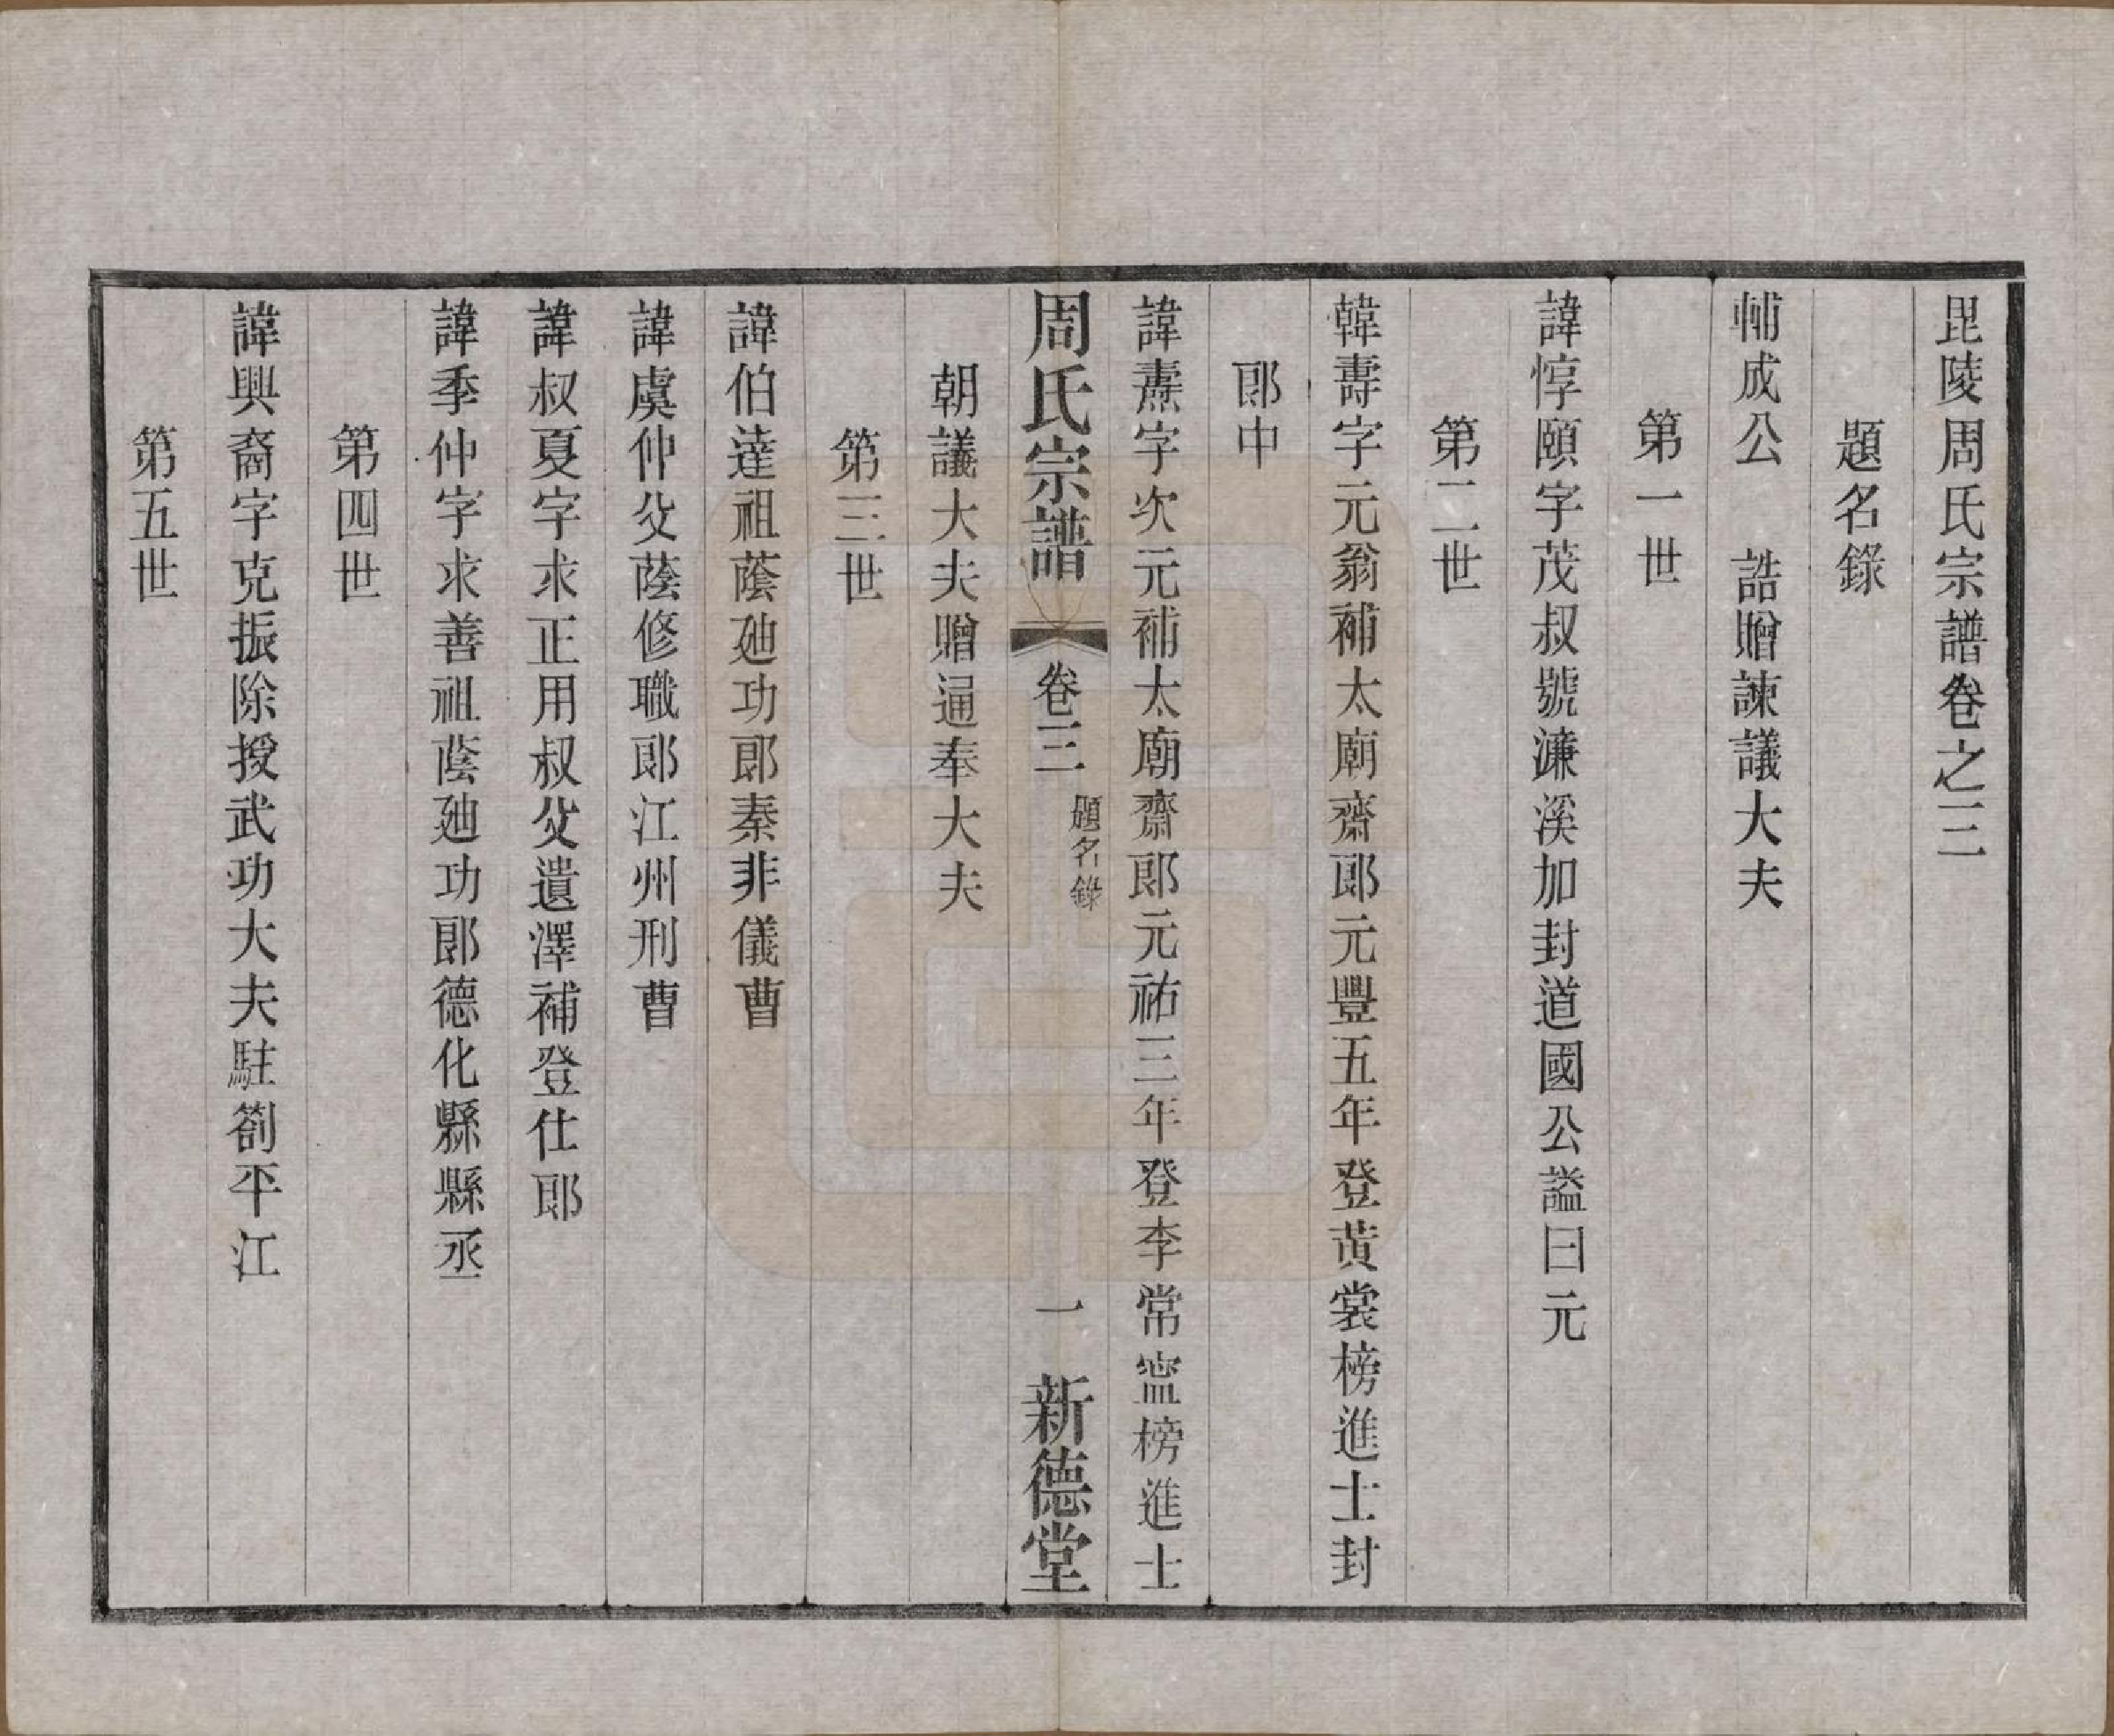 毘陵周氏宗譜卷之三
題名錄
輔成公　誥贈諫議大夫
第一世
諱惇頤字茂叔號濂溪加封道國公謚曰元
第二世
韓壽字元翁補太廟齋郎元豐五年登黃裳榜進士封
郎中
諱燾字次元補太廟齋郎元祐三年登李常寧榜進士
周氏宗譜
卷三
題名錄
一
新德堂
朝議大夫贈通奉大夫
第三世
諱伯逵祖蔭廸功郎秦非儀曹
諱虞仲父蔭修職郎江州刑曹
諱叔夏字求正用叔父遺澤補登仕郎
諱季仲字求善祖蔭廸功郎德化縣縣丞
第四世
諱興裔字克振除授武功大夫駐劄平江
第五世